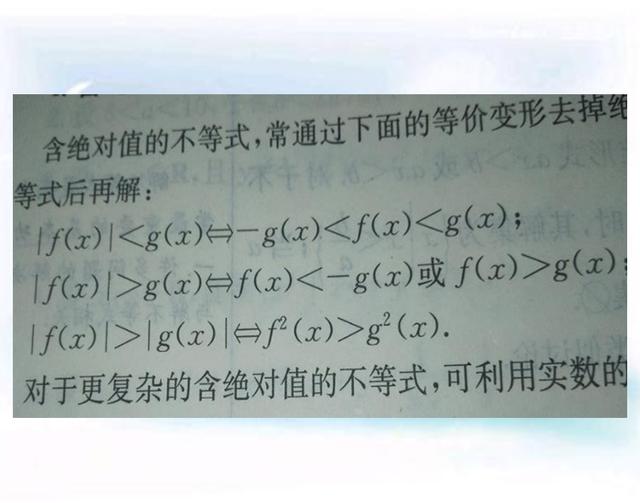 含绝对值的不等式,常通过下面的等价变形去掉绝
等式后再解:
|f(x)|<g(x)⇔-g(x)<f(x)<g(x);
|f(x)|>g(x)⇔f(x)<-g(x)或 f(x)>g(x);
|f(x)|>|g(x)|⇔f²(x)>g²(x).
对于更复杂的含绝对值的不等式,可利用实数的